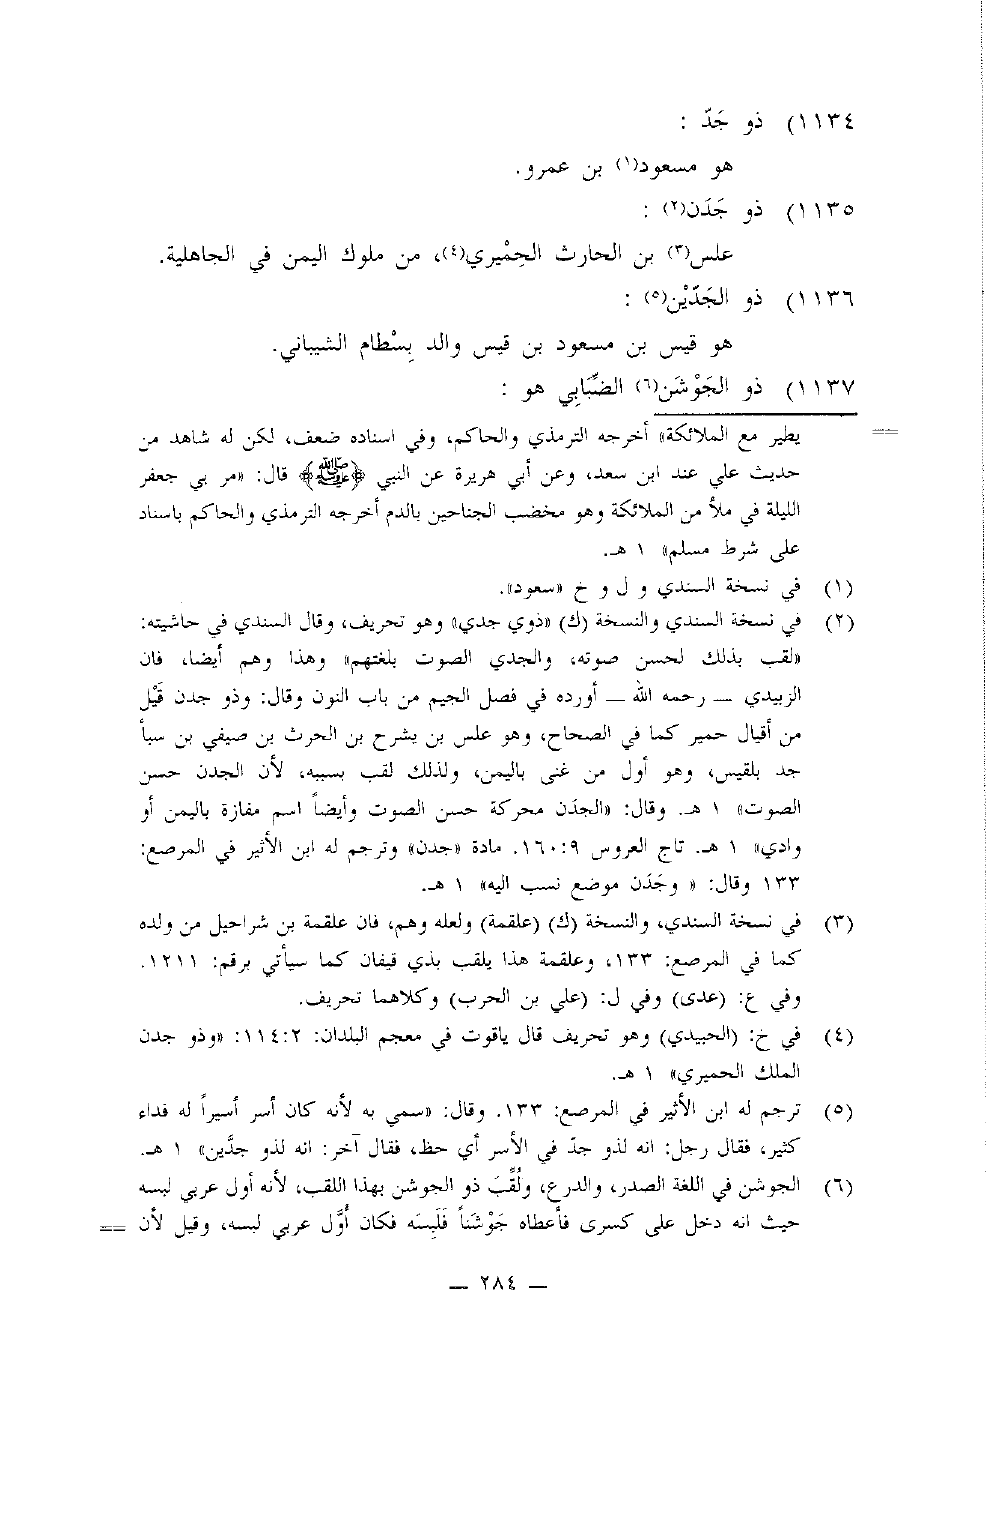 ١١٣٤) ذو جَدّ :
هو مسعود(١) بن عمرو.
١١٣٥) ذو جَدَن(٢) :
علس(٣) بن الحارث الحِمْيري(٤)، من ملوك اليمن في الجاهلية.
١١٣٦) ذو الجَدّيْن(٥) :
هو قيس بن مسعود بن قيس والد بِسْطام الشيباني.
١١٣٧) ذو الجَوْشَن(٦) الضِّبَابِي هو :
== يطير مع الملائكة» أخرجه الترمذي والحاكم، وفي اسناده ضعف، لكن له شاهد من
حديث علي عند ابن سعد، وعن أبي هريرة عن النبي ﴿ﷺ﴾ قال: «مر بي جعفر
الليلة في ملأ من الملائكة وهو مخضب الجناحين بالدم أخرجه الترمذي والحاكم باسناد
على شرط مسلم» ١ هـ.
(١) في نسخة السندي و ل و خ «سعود».
(٢) في نسخة السندي والنسخة (ك) «ذوي جدي» وهو تحريف، وقال السندي في حاشيته:
«لقب بذلك لحسن صوته، والجدي الصوت بلغتهم» وهذا وهم أيضا، فان
الزبيدي ــ رحمه الله ــ أورده في فصل الجيم من باب النون وقال: وذو جدن قَيْل
من أقيال حمير كما في الصحاح، وهو علس بن يشرح بن الحرث بن صيفي بن سبأ
جد بلقيس، وهو أول من غنى باليمن، ولذلك لقب بسببه، لأن الجدن حسن
الصوت» ١ هـ. وقال: «الجدَن محركة حسن الصوت وأيضاً اسم مفازة باليمن أو
وادي» ١ هـ. تاج العروس ١٦٠:٩. مادة «جدن» وترجم له ابن الأثير في المرصع:
١٣٣ وقال: « وجَدَن موضع نسب اليه» ١ هـ.
(٣) في نسخة السندي، والنسخة (ك) (علقمة) ولعله وهم، فان علقمة بن شراحيل من ولده
كما في المرصع: ١٣٣، وعلقمة هذا يلقب بذي قيفان كما سيأتي برقم: ١٢١١.
وفي ع: (عدى) وفي ل: (علي بن الحرب) وكلاهما تحريف.
(٤) في خ: (الحبيدي) وهو تحريف قال ياقوت في معجم البلدان: ١١٤:٢: «وذو جدن
الملك الحميري» ١ هـ.
(٥) ترجم له ابن الأثير في المرصع: ١٣٣. وقال: «سمي به لأنه كان أسر أسيراً له فداء
كثير، فقال رجل: انه لذو جدّ في الأسر أي حظ، فقال آخر: انه لذو جدَّين» ١ هـ.
(٦) الجوشن في اللغة الصدر، والدرع، ولُقِّبَ ذو الجوشن بهذا اللقب، لأنه أول عربي لبسه
حيث انه دخل على كسرى فأعطاه جَوْشَناً فَلَبِسَه فكان أُوَّل عربي لبسه، وقيل لأن ==
ــ ٢٨٤ ــ